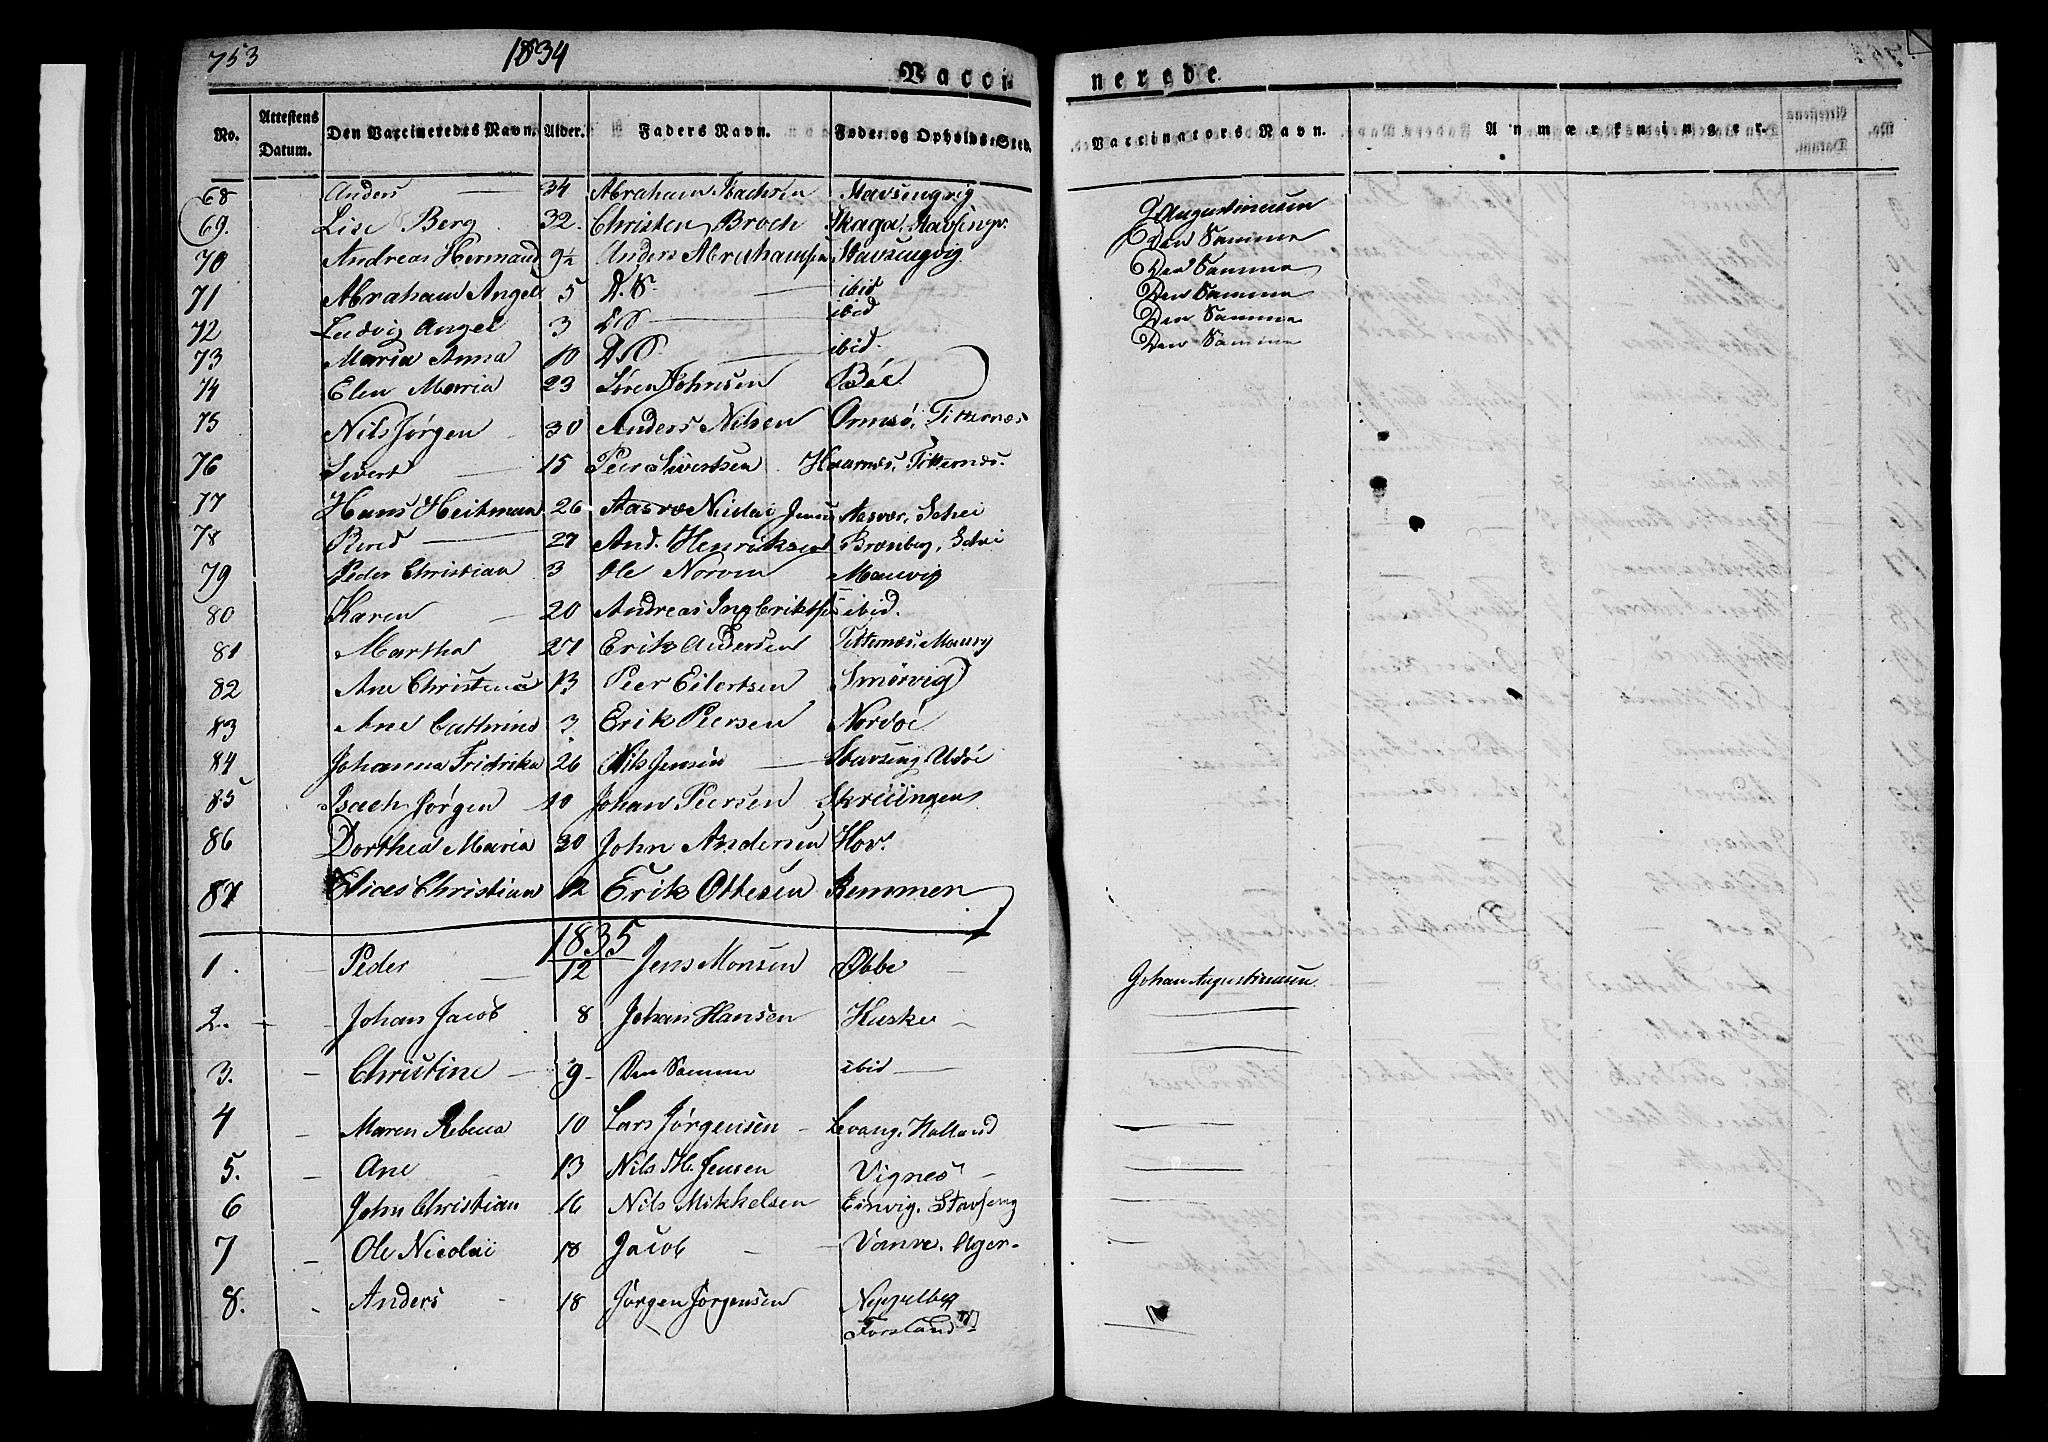 753 1834 Vacci nerede.
No. Attestens Datum. Den Vaccineredes Navn. Alder. Faders Navn. Føde- og Opholds-Sted. Vaccinators Navn. Anmærkninger.
68 Anders 34 Abraham Isachsen Stavsengvig J Augustinusen
69. Lise Berg 32. Christen Broch Skaga, Stavsengv. Den Samme
70 Andreas Hermand 9½ Anders Abrahamsen Stavsengvig. Den Samme
71 Abraham Angel 5 D.S. ibid Den Samme
72 Ludvig Angel 3 DS ibid Den Samme
73 Maria Anna 10 D.S. ibid. Den Samme
74 Elen Marria 23 Søren Johnsen Bøe.
75 Nils Jørgen 30 Anders Nilsen Ormsø, Titternæs
76 Sivert 15 Peer Sivertsen Haarnæs, Titternæs.
77 Hans Heitman 26 Nicolai Jensen Aasvær,
78 Bered 27 And. Henriksen Brænberg,
79 Peder Christian 3 Ole Norvin Maurvig
80 Karen 20 Andreas Ing Eriksen ibid.
81 Martha 27 Erik Andersen Titternæs, Maurv
82 Ane Christena 13 Peer Eilertsen Smørvig
83 Ane Cathrine 3 Erik Piersen Nordøe
84 Johanna Fridrika 26 Nils Jensen Stavseng, Udøe
85 Isach Jørgen 10 Johan Peersen
86 Dorthea Maria 30 John Andersen Hov.
87 Elias Christian 12 Erik Ottesen Remmen
1835
1. Peder 12 Jens Monsen Øbbe Johan Augustinusen
2. Johan Jacob 8 Johan Hansen Huske
3. Christine 9 Den Samme ibid
4 Maren Rebeca 10 Lars Jørgensen Levang, Halland
5. Ane 13 Nils M. Jensen Vignes
6 John Christian 16 Nils Mikkelsen Einvig, Stavseng
7 Ole Nicolai 18 Jacob Vanve, Ager
8. Anders 18 Jørgen Jørgensen Neppelberg
Forsland